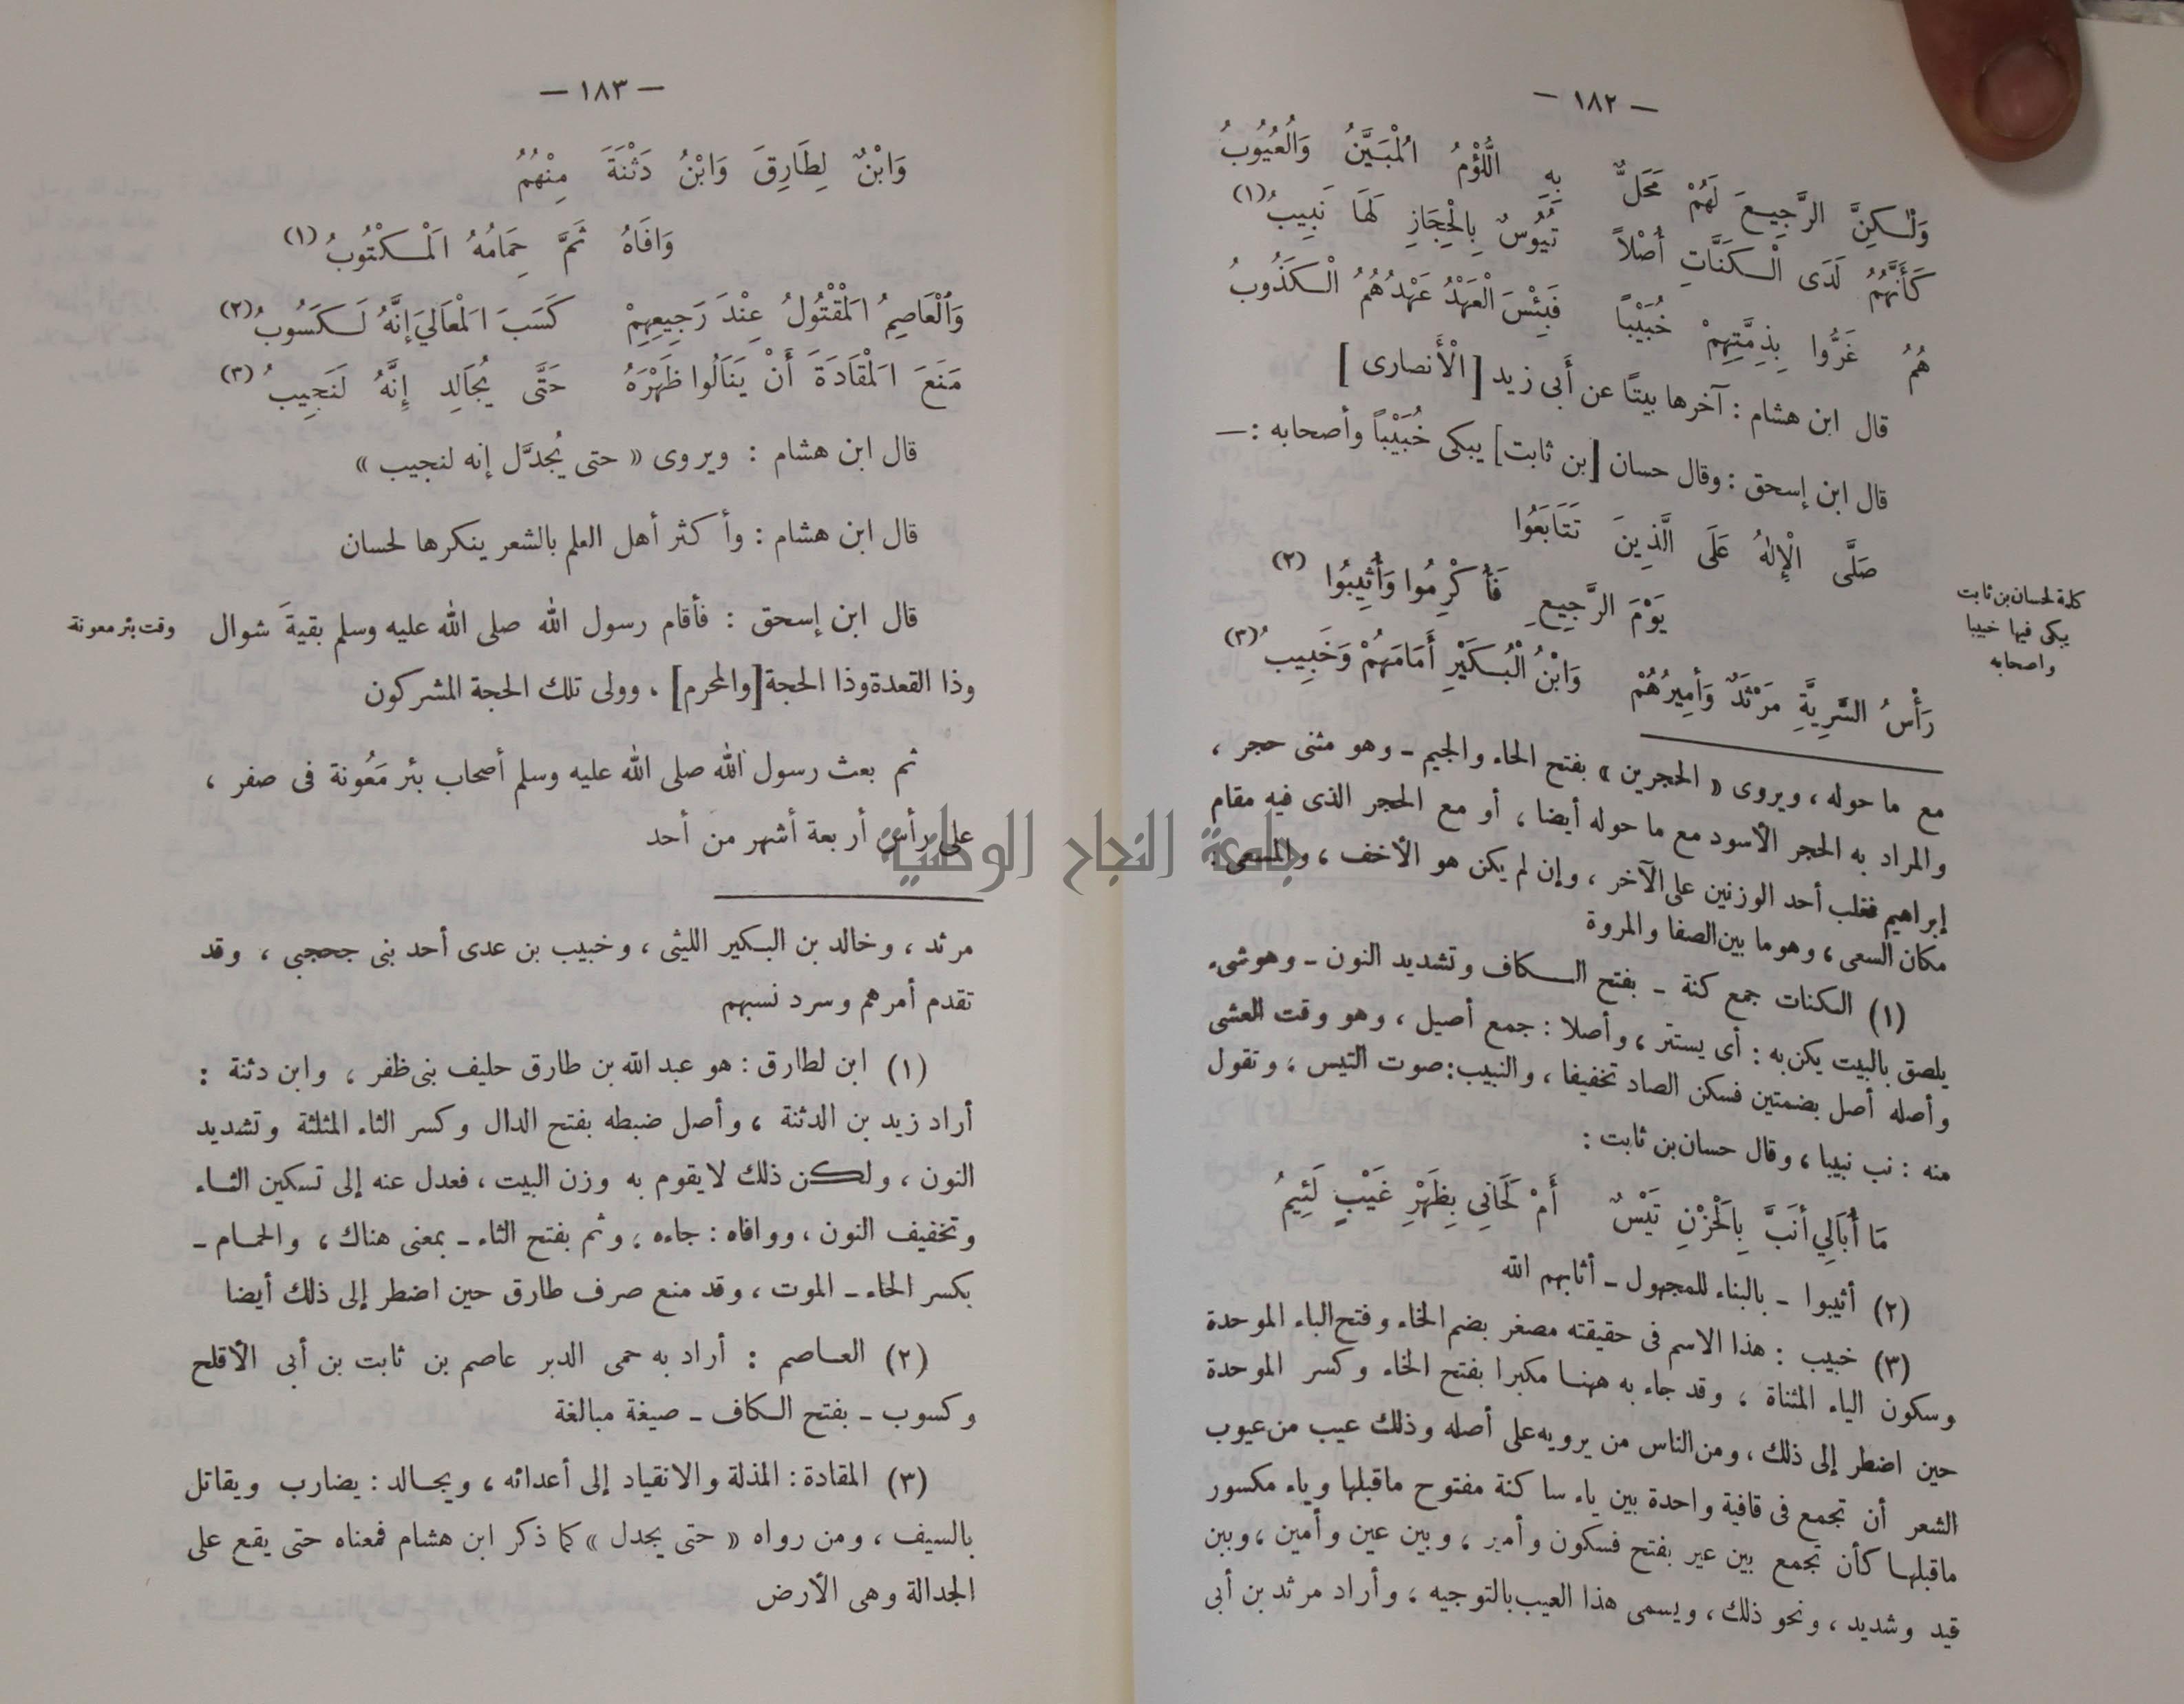 — ١٨٢ —
وَلٰكِنَّ الرَّجِيعَ لَهُمْ مَحَلٌّ بِهِ اللُّؤْمُ الْمُبَيَّنُ وَالْعُيُوبُ
كَأَنَّهُمُ لَدَى الْكَنَّاتِ أُصْلاً تُيُوسٌ بِالْحِجَازِ لَهَا نَبِيبُ (١)
هُمُ غَرُّوا بِذِمَّتِهِمْ خُبَيْباً فَبِئْسَ الْعَهْدُ عَهْدُهُمُ الْكَذُوبُ
قال ابن هشام : آخرها بيتًا عن أَبى زيد [الْأَنصارى]
قال ابن إسحق : وقال حسان [بن ثابت] يبكى خُبَيْباً وأصحابه : —
صَلَّى الْإِلٰهُ عَلَى الَّذِينَ تَتَابَعُوا
يَوْمَ الرَّجِيعِ فَأُكْرِمُوا وَأُثِيبُوا (٢)
رَأْسُ السَّرِيَّةِ مَرْثَدٌ وَأَمِيرُهُمْ وَابْنُ الْبُكَيْرِ أَمَامَهُمْ وَخَبِيبُ (٣)
كلمة لحسان بن ثابت
يبكى فيها خبيبا
واصحابه
مع ما حوله ، ويروى « الحجرين » بفتح الحاء والجيم ـ وهو مثنى حجر ،
والمراد به الحجر الأسود مع ما حوله أيضا ، أو مع الحجر الذى فيه مقام
إبراهيم فغلب أحد الوزنين على الآخر ، وإن لم يكن هو الأخف ، والمسعى :
مكان السعى ، وهو ما بين الصفا والمروة
(١) الكنات جمع كنة ـ بفتح الكاف وتشديد النون ـ وهو شىء
يلصق بالبيت يكن به : أى يستتر ، وأصلا : جمع أصيل ، وهو وقت العشى
وأصله أصل بضمتين فسكن الصاد تخفيفا ، والنبيب : صوت التيس ، وتقول
منه : نب نبيبا ، وقال حسان بن ثابت :
مَا أُبَالِي أَنَبَّ بِالْحَزْنِ تَيْسٌ أَمْ لَحَانِي بِظَهْرِ غَيْبٍ لَئِيمُ
(٢) أثيبوا ـ بالبناء للمجهول ـ أثابهم الله
(٣) خبيب : هذا الاسم فى حقيقته مصغر بضم الخاء وفتح الباء الموحدة
وسكون الياء المثناة ، وقد جاء به ههنا مكبرا بفتح الخاء وكسر الموحدة
حين اضطر إلى ذلك ، ومن الناس من يرويه على أصله وذلك عيب من عيوب
الشعر أن تجمع فى قافية واحدة بين ياء ساكنة مفتوح ماقبلها وياء مكسور
ماقبلها كأن تجمع بين عير بفتح فسكون وأمير ، وبين عين وأمين ، وبين
قيد وشديد ، ونحو ذلك ، ويسمى هذا العيب بالتوجيه ، وأراد مرثد بن أبى
— ١٨٣ —
وَابْنٌ لِطَارِقَ وَابْنُ دَثْنَةَ مِنْهُمُ
وَافَاهُ ثَمَّ حِمَامُهُ الْمَكْتُوبُ (١)
وَالْعَاصِمُ الْمَقْتُولُ عِنْدَ رَجِيعِهِمْ كَسَبَ الْمَعَالِيَ إِنَّهُ لَكَسُوبُ (٢)
مَنَعَ الْمَقَادَةَ أَنْ يَنَالُوا ظَهْرَهُ حَتَّى يُجَالِد إِنَّهُ لَنَجِيبُ (٣)
قال ابن هشام : ويروى « حتى يُجَدَّل إنه لنجيب »
قال ابن هشام : وأكثر أهل العلم بالشعر ينكرها لحسان
قال ابن إسحق : فأقام رسول الله صلى الله عليه وسلم بقيةَ شوال
وقت بئر معونة
وذا القعدة وذا الحجة [والمحرم] ، وولى تلك الحجة المشركون
ثم بعث رسول الله صلى الله عليه وسلم أصحاب بئر مَعُونة فى صفر ،
على رأس أربعة أشهر من أحد
جامعة النجاح الوطنية
مرثد ، وخالد بن البكير الليثى ، وخبيب بن عدى أحد بنى جحجبى ، وقد
تقدم أمرهم وسرد نسبهم
(١) ابن لطارق : هو عبد الله بن طارق حليف بنى ظفر ، وابن دثنة :
أراد زيد بن الدثنة ، وأصل ضبطه بفتح الدال وكسر الثاء المثلثة وتشديد
النون ، ولكن ذلك لا يقوم به وزن البيت ، فعدل عنه إلى تسكين الثاء
وتخفيف النون ، ووافاه : جاءه ، وثم بفتح الثاء ـ بمعنى هناك ، والحمام ـ
بكسر الحاء ـ الموت ، وقد منع صرف طارق حين اضطر إلى ذلك أيضا
(٢) العاصم : أراد به حمى الدبر عاصم بن ثابت بن أبى الأقلح
وكسوب ـ بفتح الكاف ـ صيغة مبالغة
(٣) المقادة : المذلة والانقياد إلى أعدائه ، ويجالد : يضارب ويقاتل
بالسيف ، ومن رواه « حتى يجدل » كما ذكر ابن هشام فمعناه حتى يقع على
الجدالة وهى الأرض